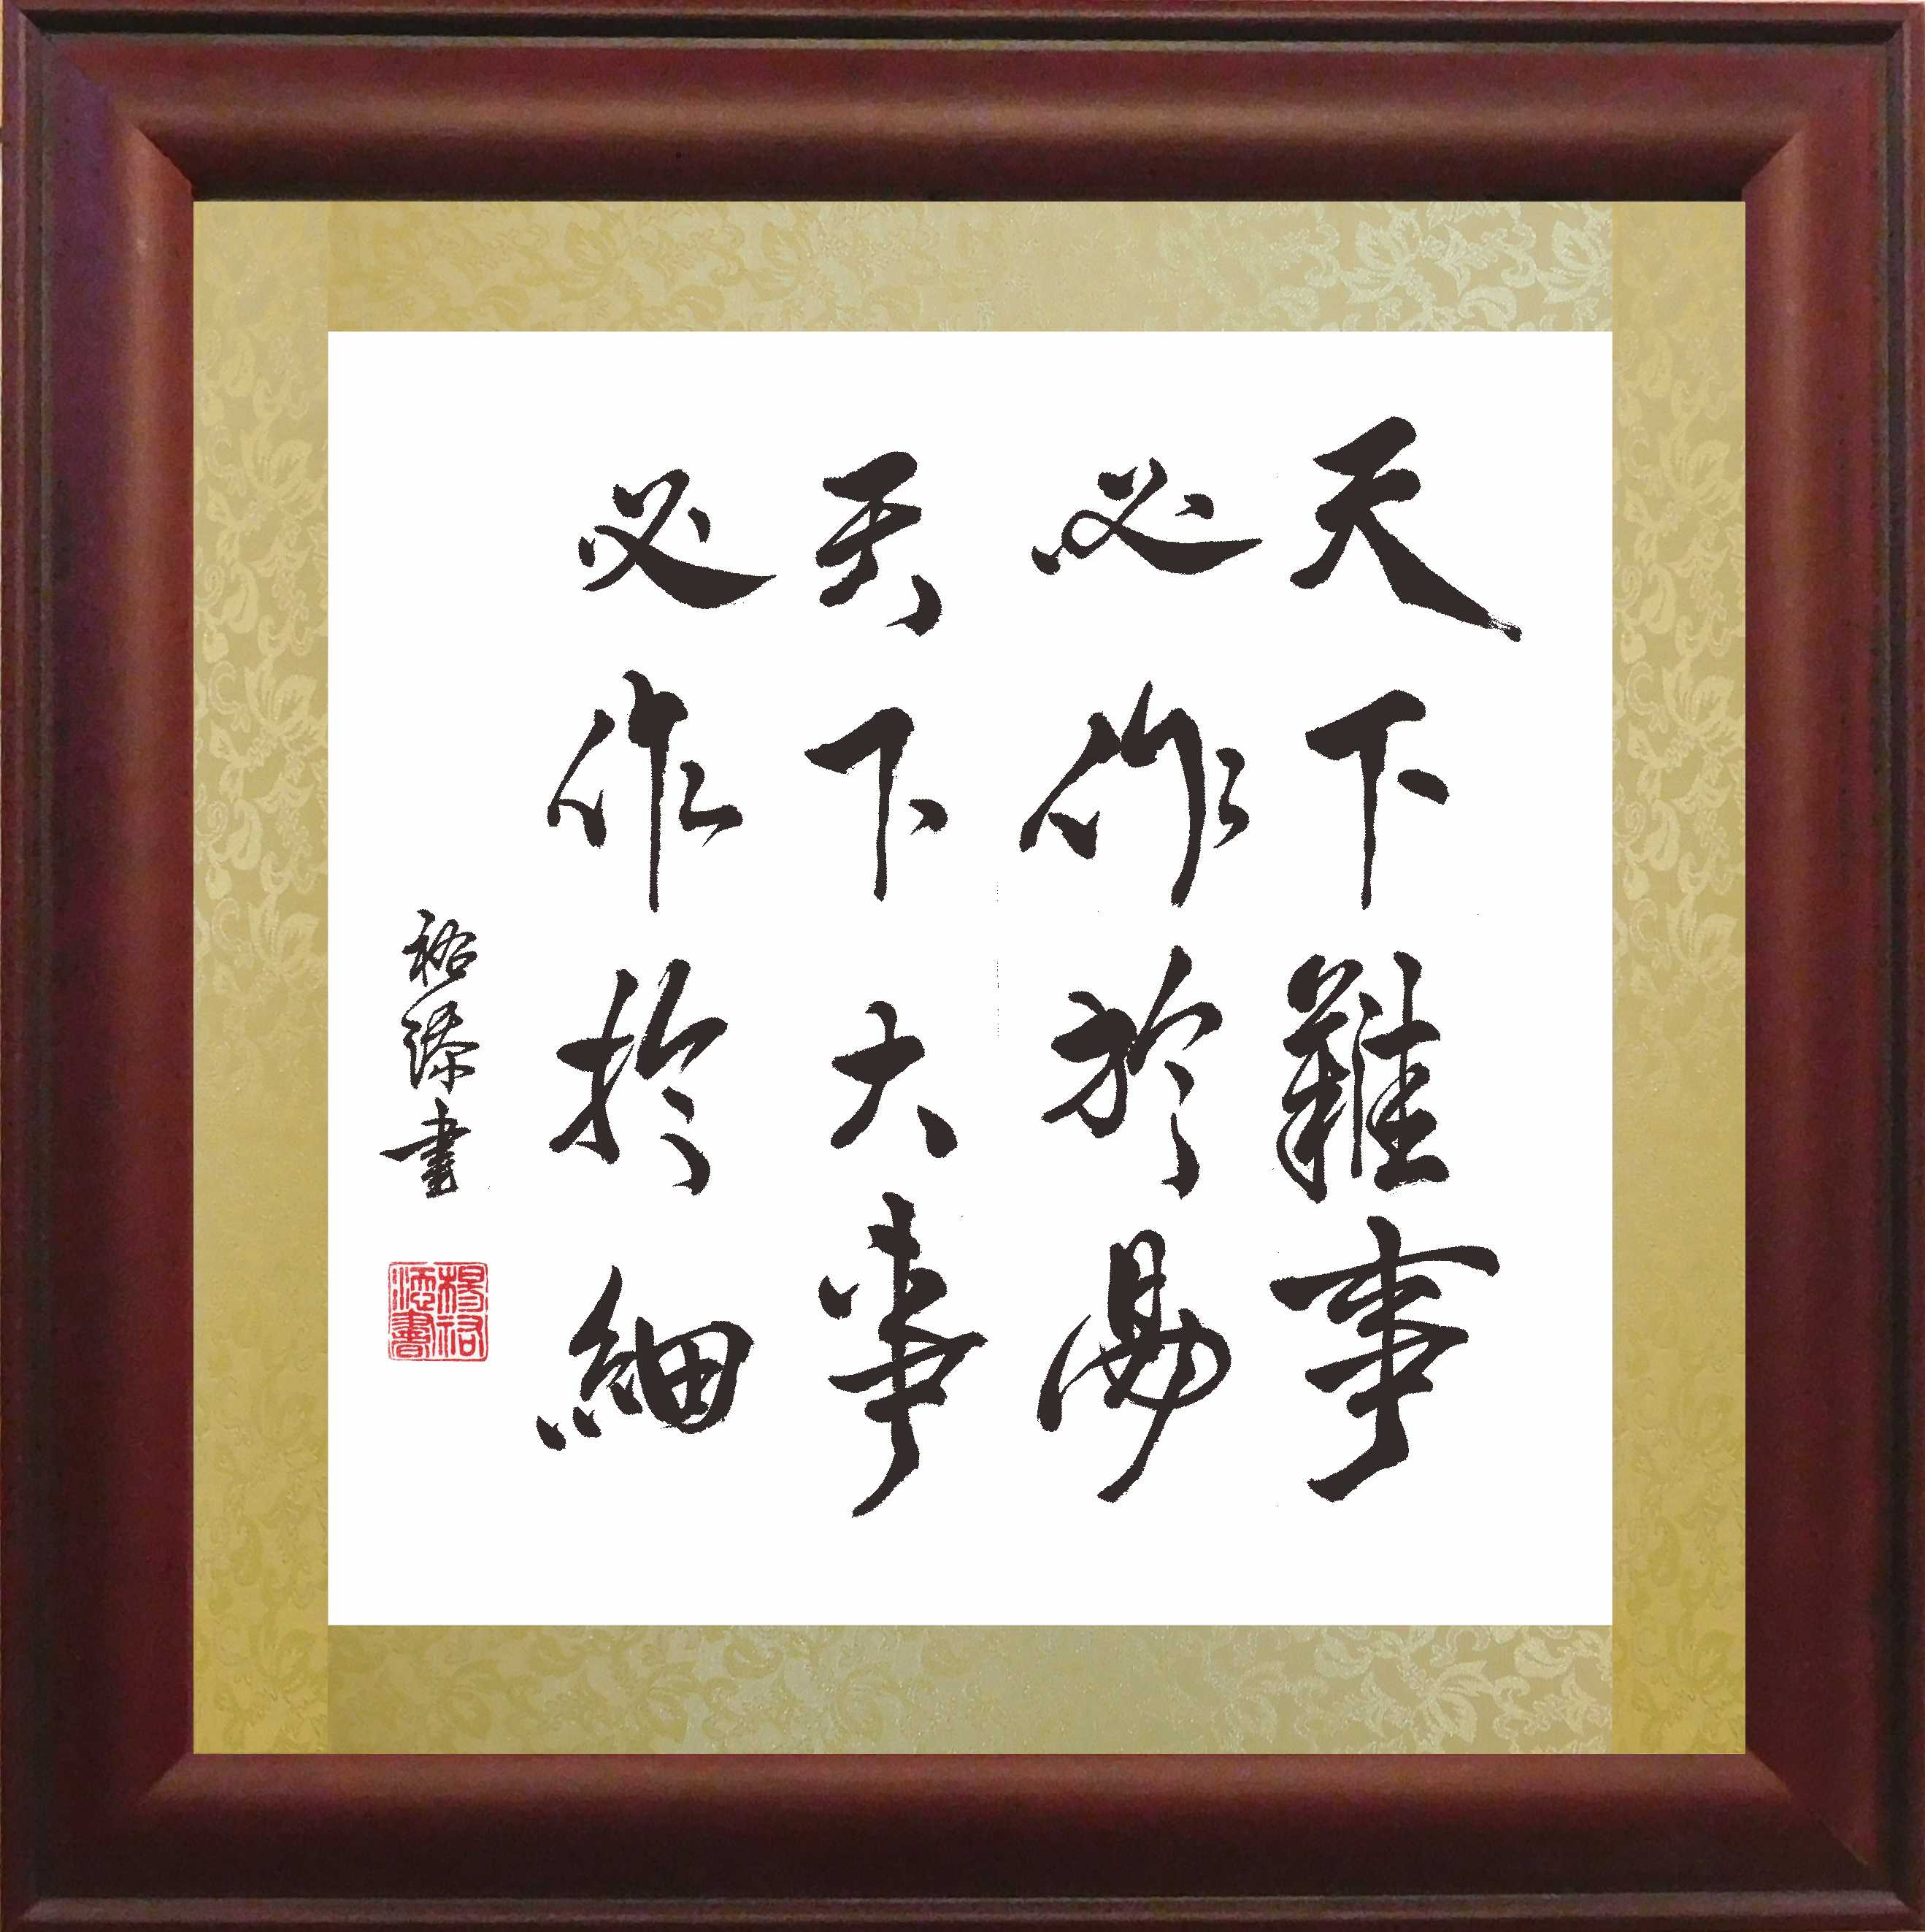 天下難事
必作於易
天下大事
必作於細
裕添書
楊裕添書